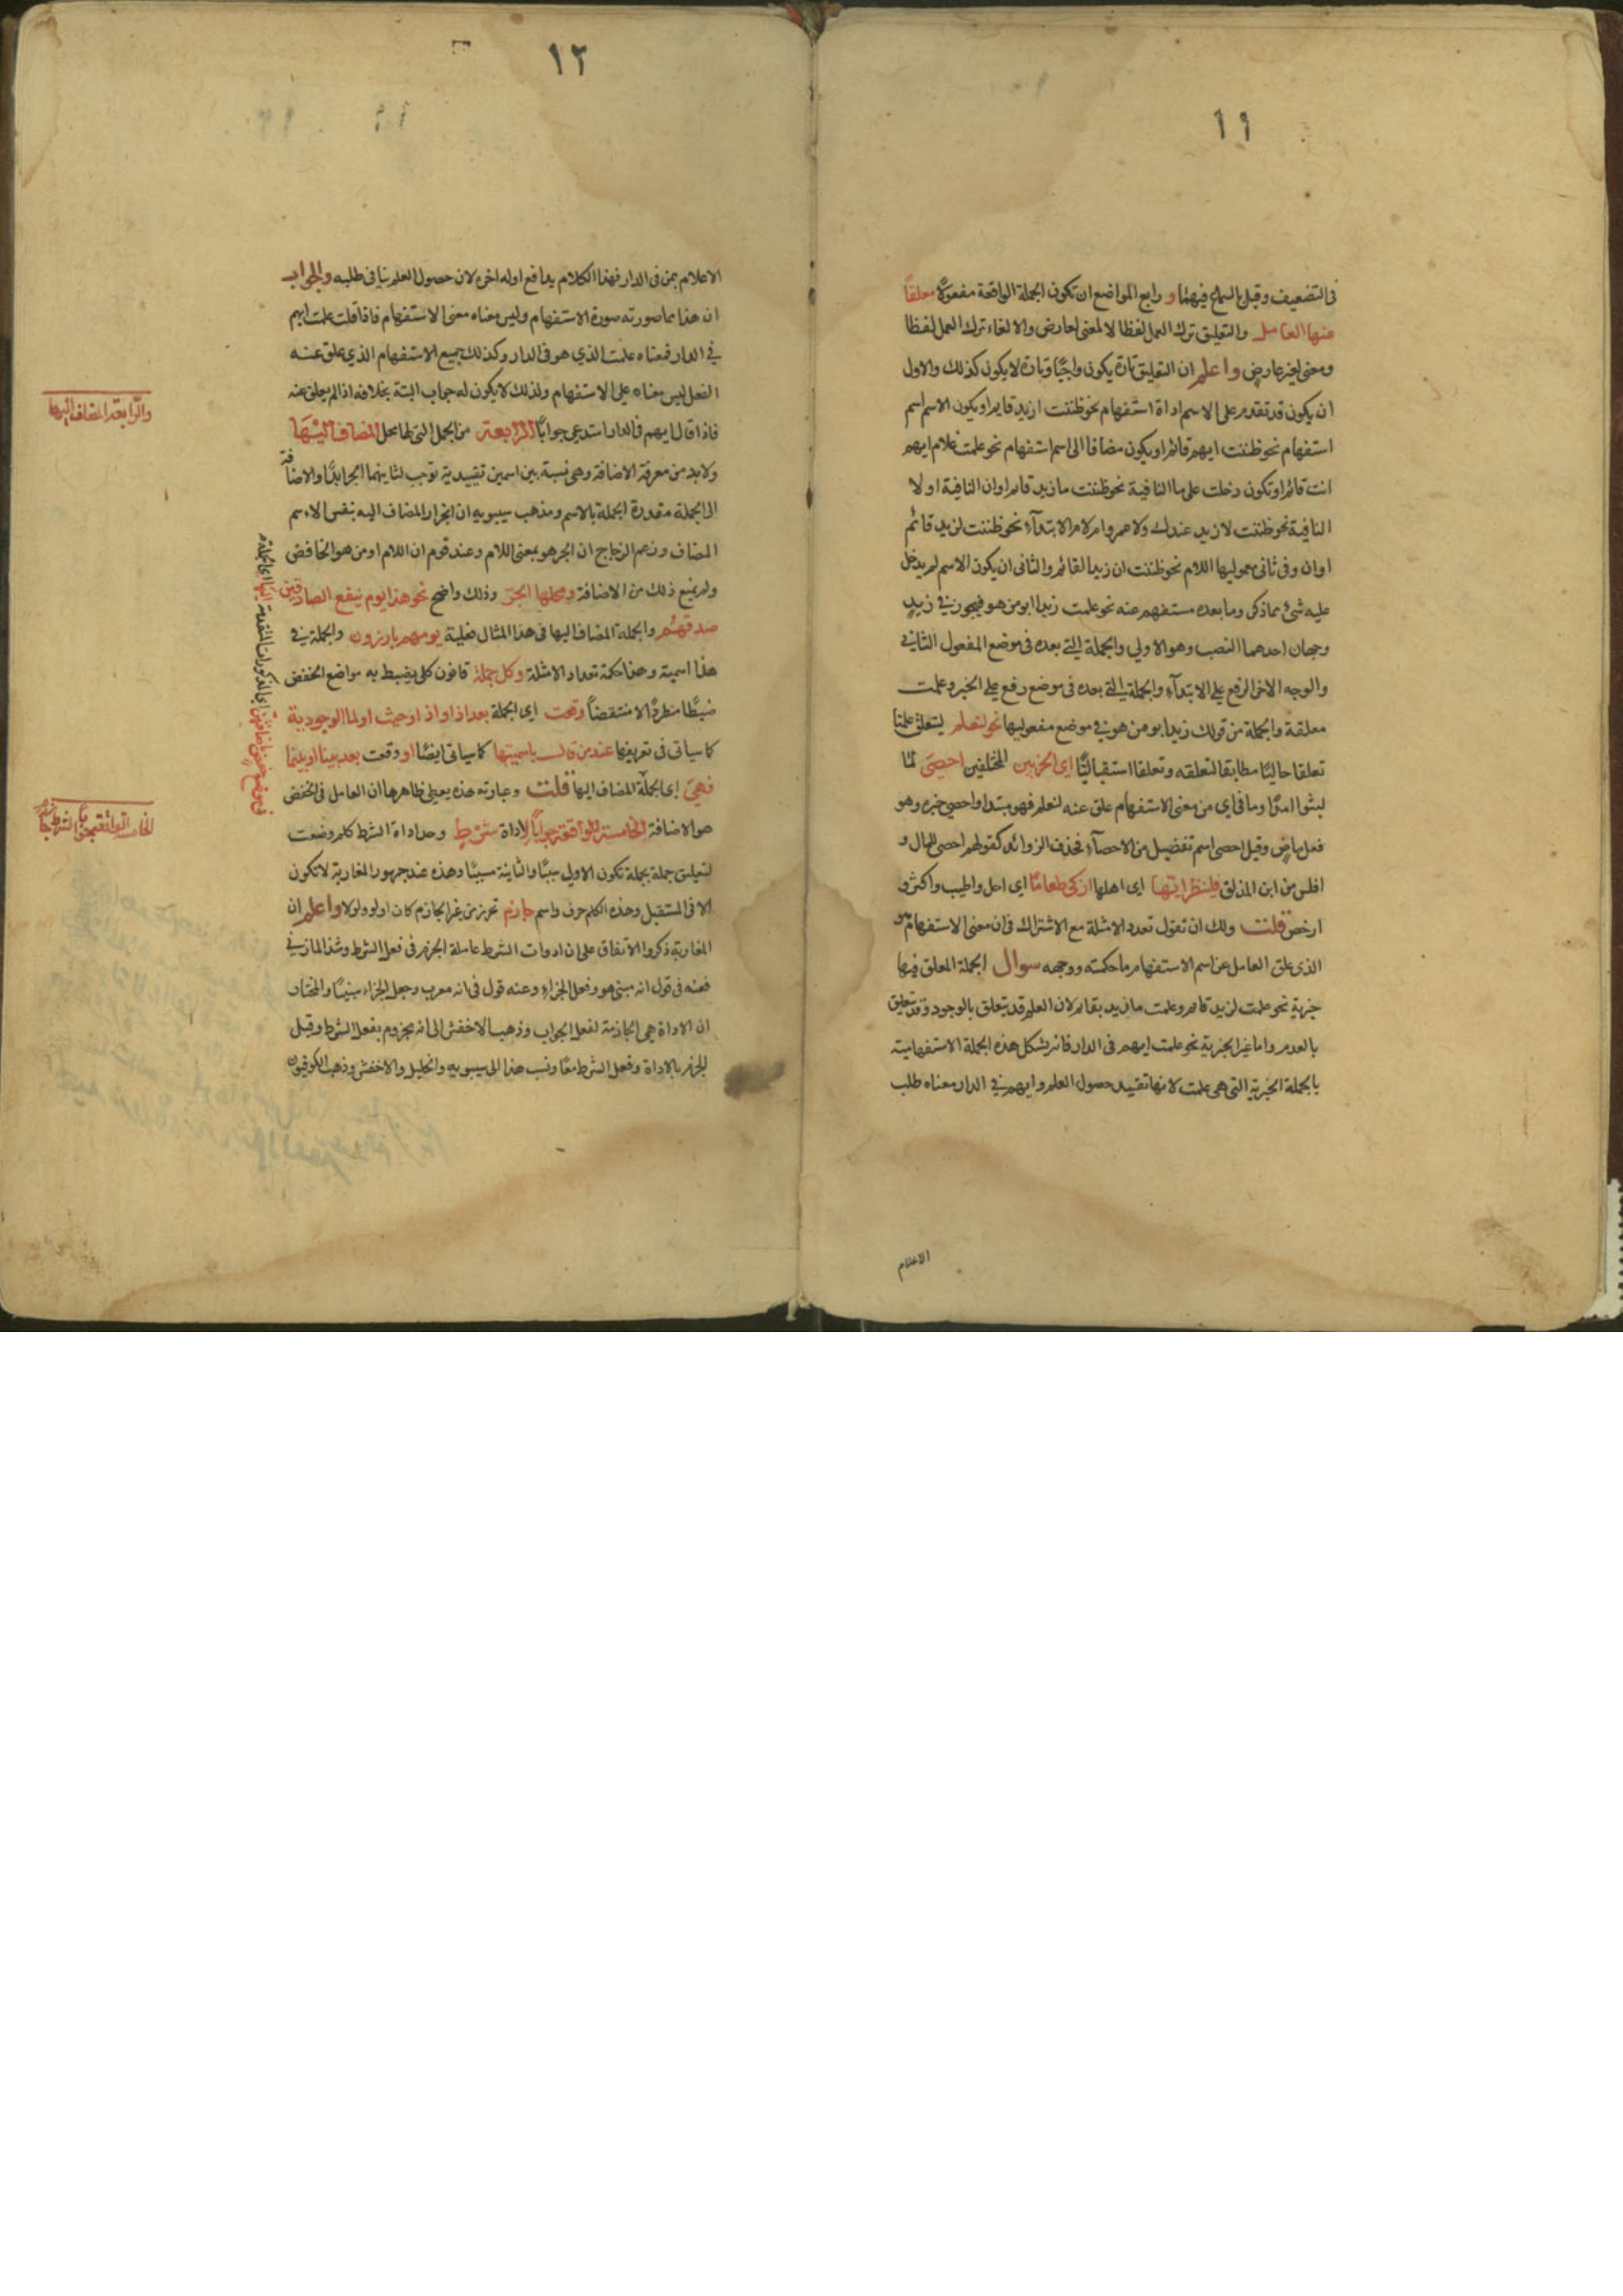 ١١
فى التضعيف وقبل السماع فيهما و رابع المواضع ان تكون الجملة الواقعة مفعولا معلقا
عنها العامل والتعليق ترك العمل لفظا لا لمعنى لعارض والالغاء ترك العمل لفظا
ومعنى لغير عارض واعلم ان التعليق تارة يكون واجبًا وتارة لا يكون كذلك والاول
ان يكون قد تقدم على الاسم اداة استفهام نحو ظننت ازيد قايم او يكون الاسم اسم
استفهام نحو ظننت ايهم قائم او يكون مضافا الى اسم استفهام نحو علمت غلام ايهم
انت قائم او تكون دخلت على ما النافية نحو ظننت ما زيد قايم او ان النافية او لا
النافية نحو ظننت لا زيد عندك ولا عمرو او لام الابتداء نحو ظننت لزيد قائم
او ان وفى ثانى معموليها اللام نحو ظننت ان زيدا لقائم والثانى ان يكون الاسم لم يدخل
عليه شئ مما ذكر وما بعده مستفهم عنه نحو علمت زيدا ابو من هو فيجوز في زيد
وجهان احدهما النصب وهو الاولي والجملة التي بعده فى موضع المفعول الثاني
والوجه الاخر الرفع علي الابتداء والجملة التي بعده فى موضع رفع علي الخبر وعلمت
معلقة والجملة من قولك زيد ابو من هو في موضع مفعوليها نحو لنعلم ليتعلق علمنا
تعلقا حاليًا مطابقا لتعلقه وتعلقا استقباليًا اى الحزبين المختلفين احصى لما
لبثوا امدًا وما فى اي من معنى الاستفهام علق عنه لنعلم فهو مبتدا واحصي خبره وهو
فعل ماض وقيل احصى اسم تفضيل من الاحصاء بحذف الزوائد كقولهم احصى للمال و
افلس من ابن المذلق فلينظر ايها اى اهلها ازكى طعامًا اى احل واطيب واكثر و
ارخص قلت ولك ان تقول تعدد الامثلة مع الاشتراك فى ان معنى الاستفهام هو
الذى علق العامل عن اسم الاستفهام ما حكمته ووجهه سوال الجملة المعلق فيها
خبرية نحو علمت لزيد قائم وعلمت ما زيد بقائم لان العلم قد يتعلق بالوجود وقد يتعلق
بالعدم واما غير الخبرية نحو علمت ايهم فى الدار فانه يشكل هذه الجملة الاستفهامية
بالجملة الخبرية التى هى علمت لانها تفيد حصول العلم وايهم في الدار معناه طلب
الاعلام
١٢
الاعلام بمن فى الدار فهذا الكلام يدافع اوله اخره لان حصول العلم ينافى طلبه والجواب
ان هذا مما صورته صورة الاستفهام وليس معناه معنى الاستفهام فاذا قلت علمت ايهم
في الدار فمعناه علمت الذي هو فى الدار وكذلك جميع الاستفهام الذي علق عنه
الفعل ليس معناه علي الاستفهام ولذلك لا يكون له جواب البتة بخلافه اذا لم يعلق عنه
فاذا قال ايهم فى الدار استدعي جوابًا الرابعة من الجمل التى لها محل المضاف اليها
ولا بد من معرفة الاضافة وهى نسبة بين اسمين تقييدية توجب لثانيهما الجر ابدًا والاضافة
الى الجملة مقدرة الجملة بالاسم ومذهب سيبويه ان انجرار المضاف اليه بنفس الاسم
المضاف وزعم الزجاج ان الجر هو بمعنى اللام وعند قوم ان اللام او من هو الخافض
ولم يمنع ذلك من الاضافة ومحلها الجر وذلك واضح نحو هذا يوم ينفع الصادقين
صدقهم والجملة المضاف اليها فى هذا المثال فعلية يوم هم بارزون والجملة في
هذا اسمية وهذا حكمة تعداد الامثلة وكل جملة قانون كلى يضبط به مواضع الخفض
ضبطًا مطردًا لا منتقضًا وقعت اى الجملة بعد اذا او اذ او حيث او لما الوجودية
كما سياتى فى تعريفها عند من قال باسميتها كما سياتى ايضًا او وقعت بعد بينا او بينما
فهي اى الجملة المضاف اليها قلت وعبارته هذه يعطى ظاهرها ان العامل فى الخفض
هو الاضافة الخامسة الواقعة جوابًا لاداة شرط وحد اداة الشرط كلم وضعت
لتعليق جملة بجملة تكون الاولي سببًا والثانية مسببًا وهذه عند جمهور المغاربة لا تكون
الا فى المستقبل وهذه الكلم حرف واسم جازم تحرز من غير الجازم كان اولو ولولا واعلم ان
المغاربة ذكروا الاتفاق على ان ادوات الشرط عاملة الجزم فى فعل الشرط وشذ المازني
فعنه فى قول انه مبنى هو وفعل الجزاء وعنه قول فى انه معرب وجعل الجزاء مبنيًا والمختار
ان الاداة هي الجازمة لفعل الجواب وذهب الاخفش الى انه مجزوم بفعل الشرط وقيل
الجزم بالاداة وفعل الشرط معًا ونسب هذا الى سيبويه والخليل والاخفش وذهب الكوفيون
والرابعة المضاف اليها